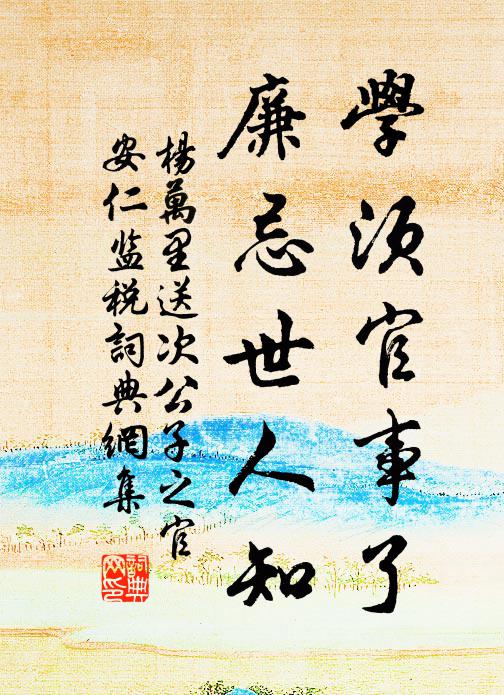 學須官事了
廉忌世人知
楊萬里送次公子之官
安仁监税詞典網集
詞典網印